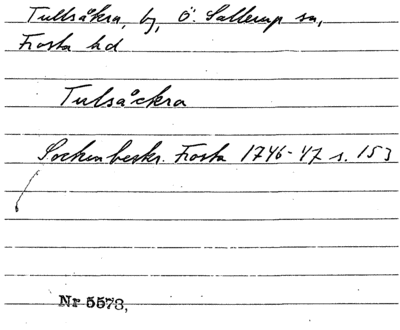 Tullsåkra, by, Ö. Sallerup sn,
Frosta hd
Tulsåckra
Sockenbeskr. Frosta 1746-47 s. 153
Nr 5578,